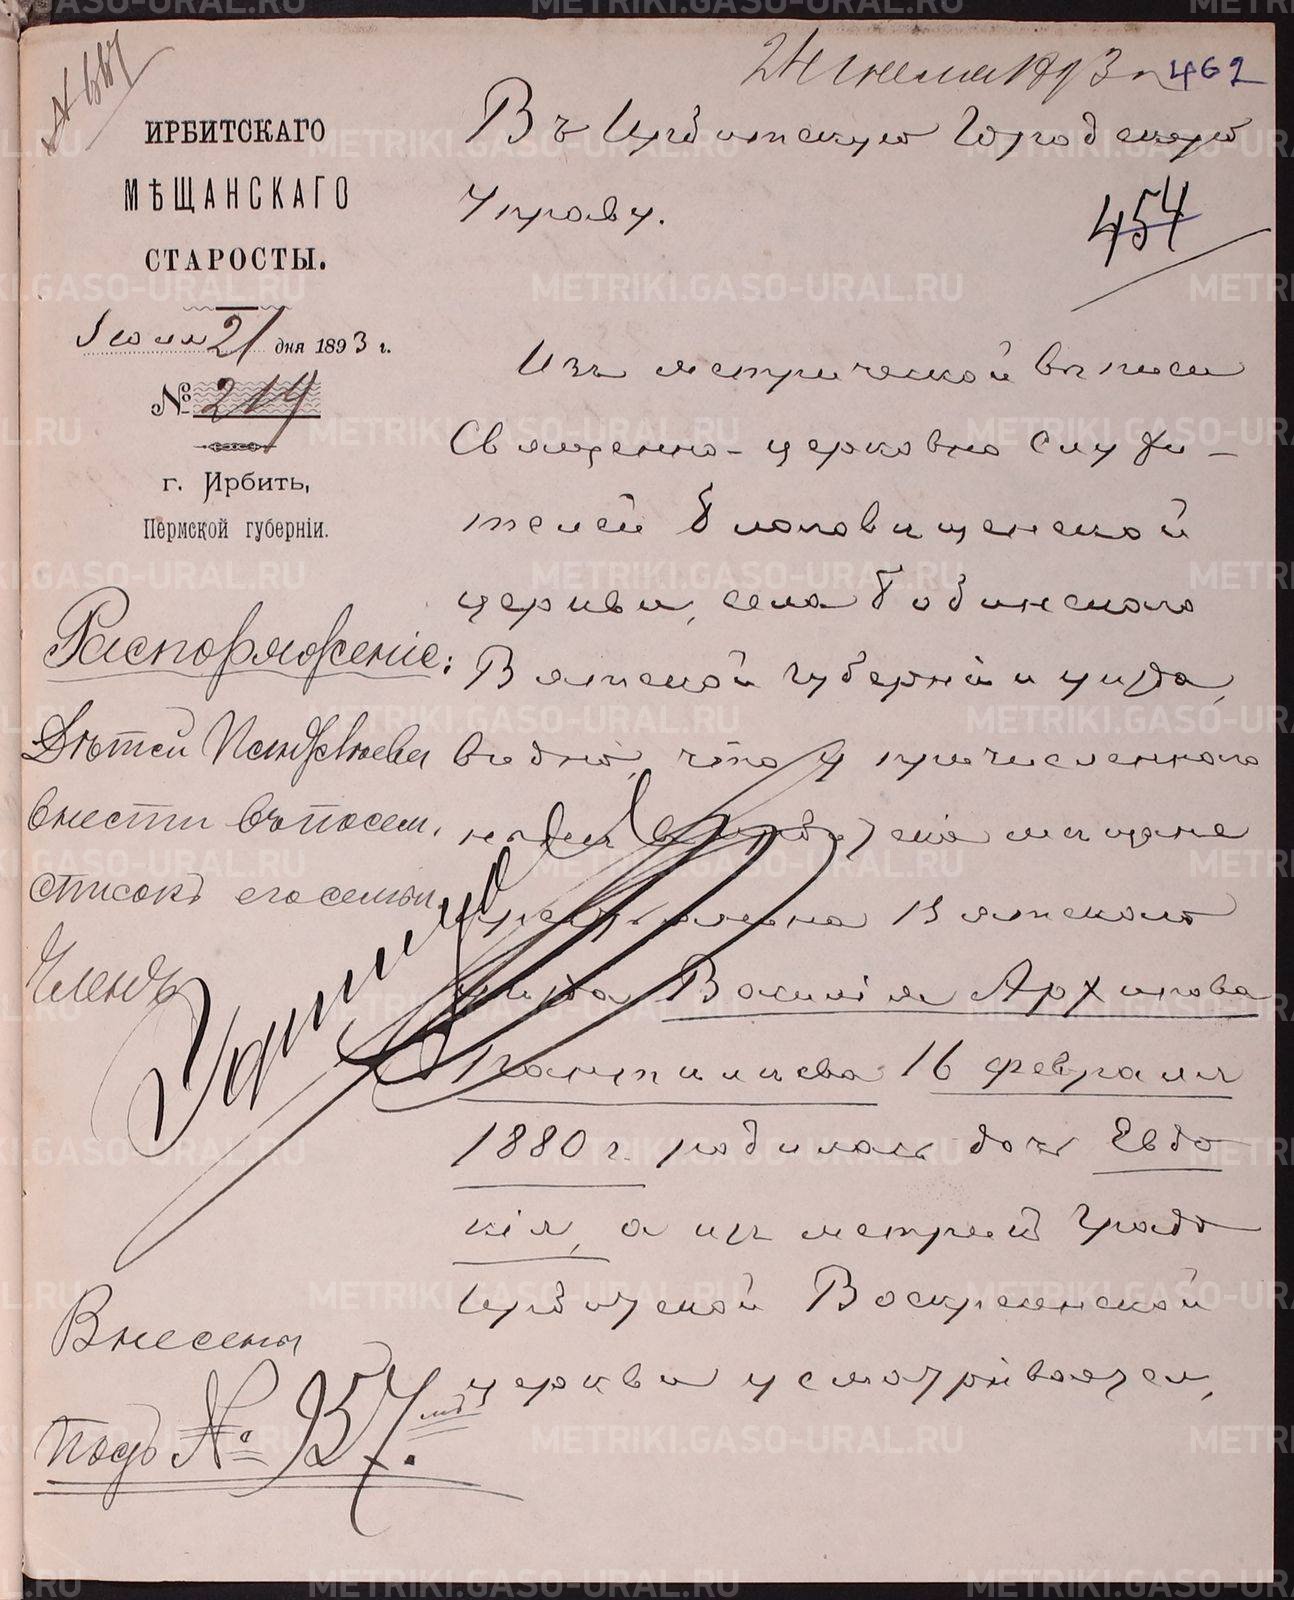 24 июля 1893 г. 462
ИРБИТСКАГО
МѢЩАНСКАГО
СТАРОСТЫ.
Іюля 21 дня 1893 г.
№ 219
г. Ирбитъ,
Пермской губерніи.
Распоряженіе:
Дѣтей
внести въ посем.
списокъ его семьи.
Членъ
Внесены
подъ № 957.
Въ Ирбитскую Городскую
Управу.
454
Изъ метрической выписи
Священно-церковно служи-
телей Благовѣщенской
церкви, села Бобинскаго
Вятской губерніи и уѣзда,
видно, что у причисленнаго
въ мѣщане
Вятскаго
уѣзда Василія Архипова
16 февраля
1880 г. родилась дочь Евдо
кія, а изъ метрикъ градо
Ирбитской Воскресенской
церкви усматривается,
METRIKI.GASO-URAL.RU